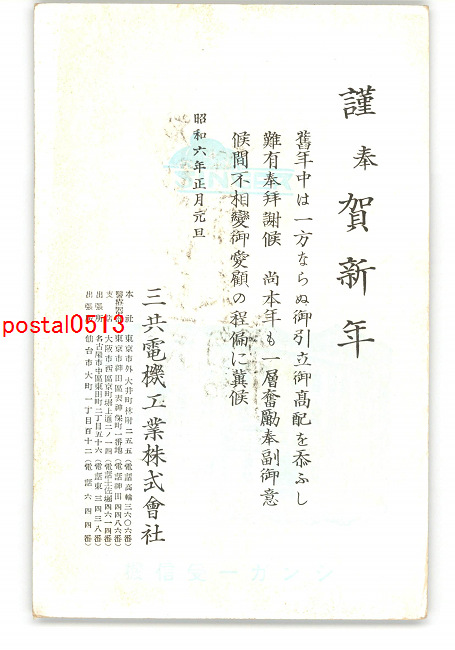 謹奉賀新年
舊年中は一方ならぬ御引立御高配を忝ふし
難有奉拜謝候 尚本年も一層奮勵奉副御意
候間不相變御愛顧の程偏に冀候
昭和六年正月元旦
三共電機工業株式會社
本社 東京市外大井町林附二五五(電話高輪三六〇六番)
東京市神田區表神保町一番地(電話神田四四八六番)
支 大阪市西區京町堀上通二ノ一四(電話土佐堀四六一四番)
出張所 名古屋市中區東田町二丁目五十六(電話東三四三八番)
出張 仙台市大町一丁目百十二(電話六四四番)
postal0513